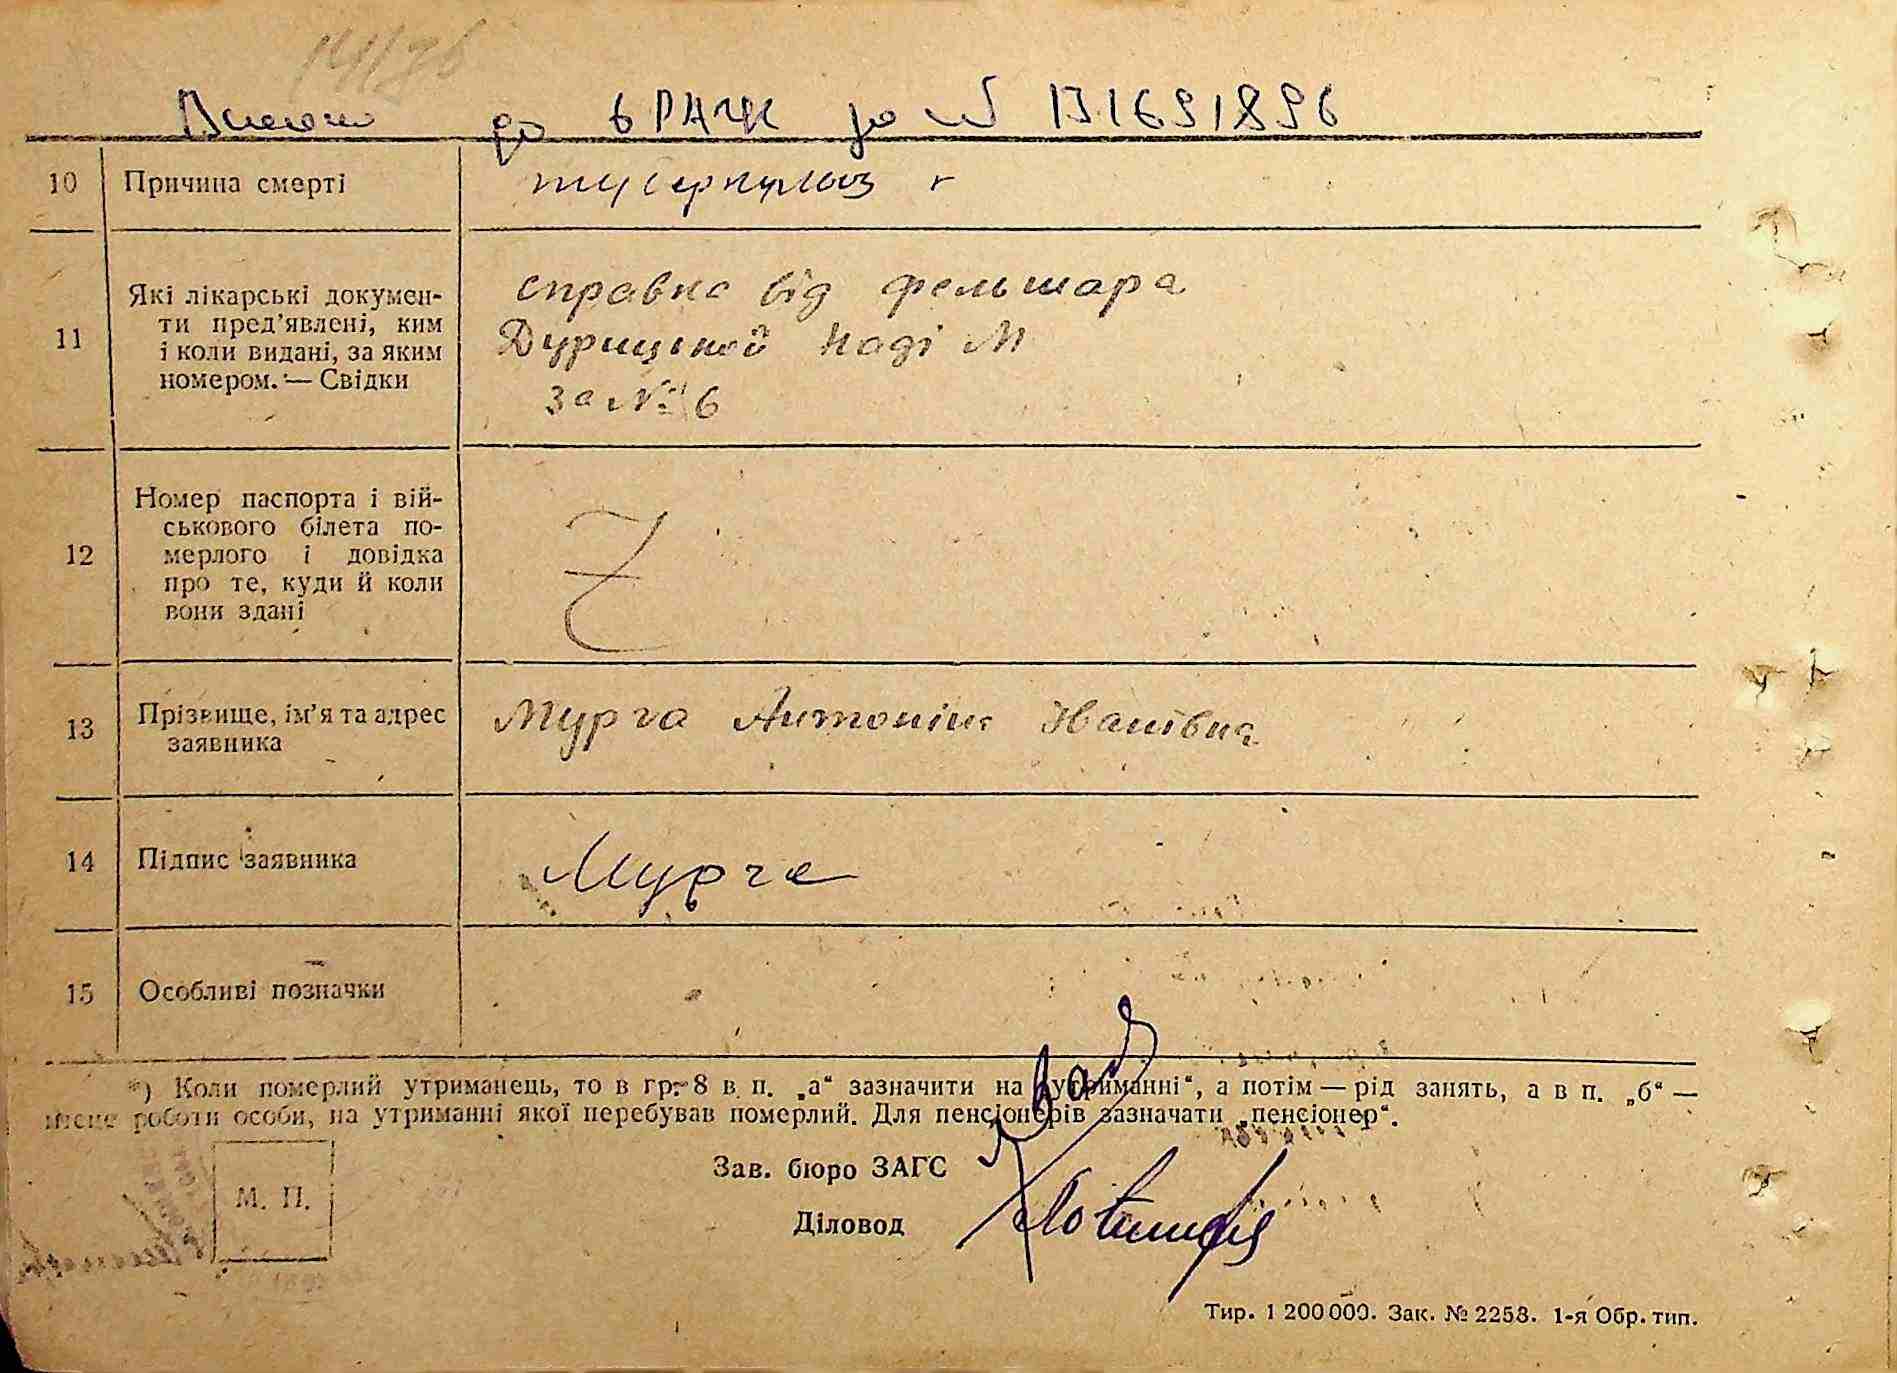 Внесено до ЄРАЦС за № 131691896
10 Причина смерті туберкульоз г
11 Які лікарські докумен-
ти пред’явлені, ким
і коли видані, за яким
номером. — Свідки
справка від фельшара
Наді М
за № 6
12 Номер паспорта і вій-
ськового білета по-
мерлого і довідка
про те, куди й коли
вони здані
13 Прізвище, ім’я та адрес
заявника
Мурга Антоніна Іванівна
14 Підпис заявника Мурга
15 Особливі позначки
*) Коли померлий утриманець, то в гр. 8 в п. „а“ зазначити на „утриманні“, а потім — рід занять, а в п. „б“ —
місце роботи особи, на утриманні якої перебував померлий. Для пенсіонерів зазначати „пенсіонер“.
М. П.
Зав. бюро ЗАГС
Діловод
Тир. 1 200 000. Зак. № 2258. 1-я Обр. тип.